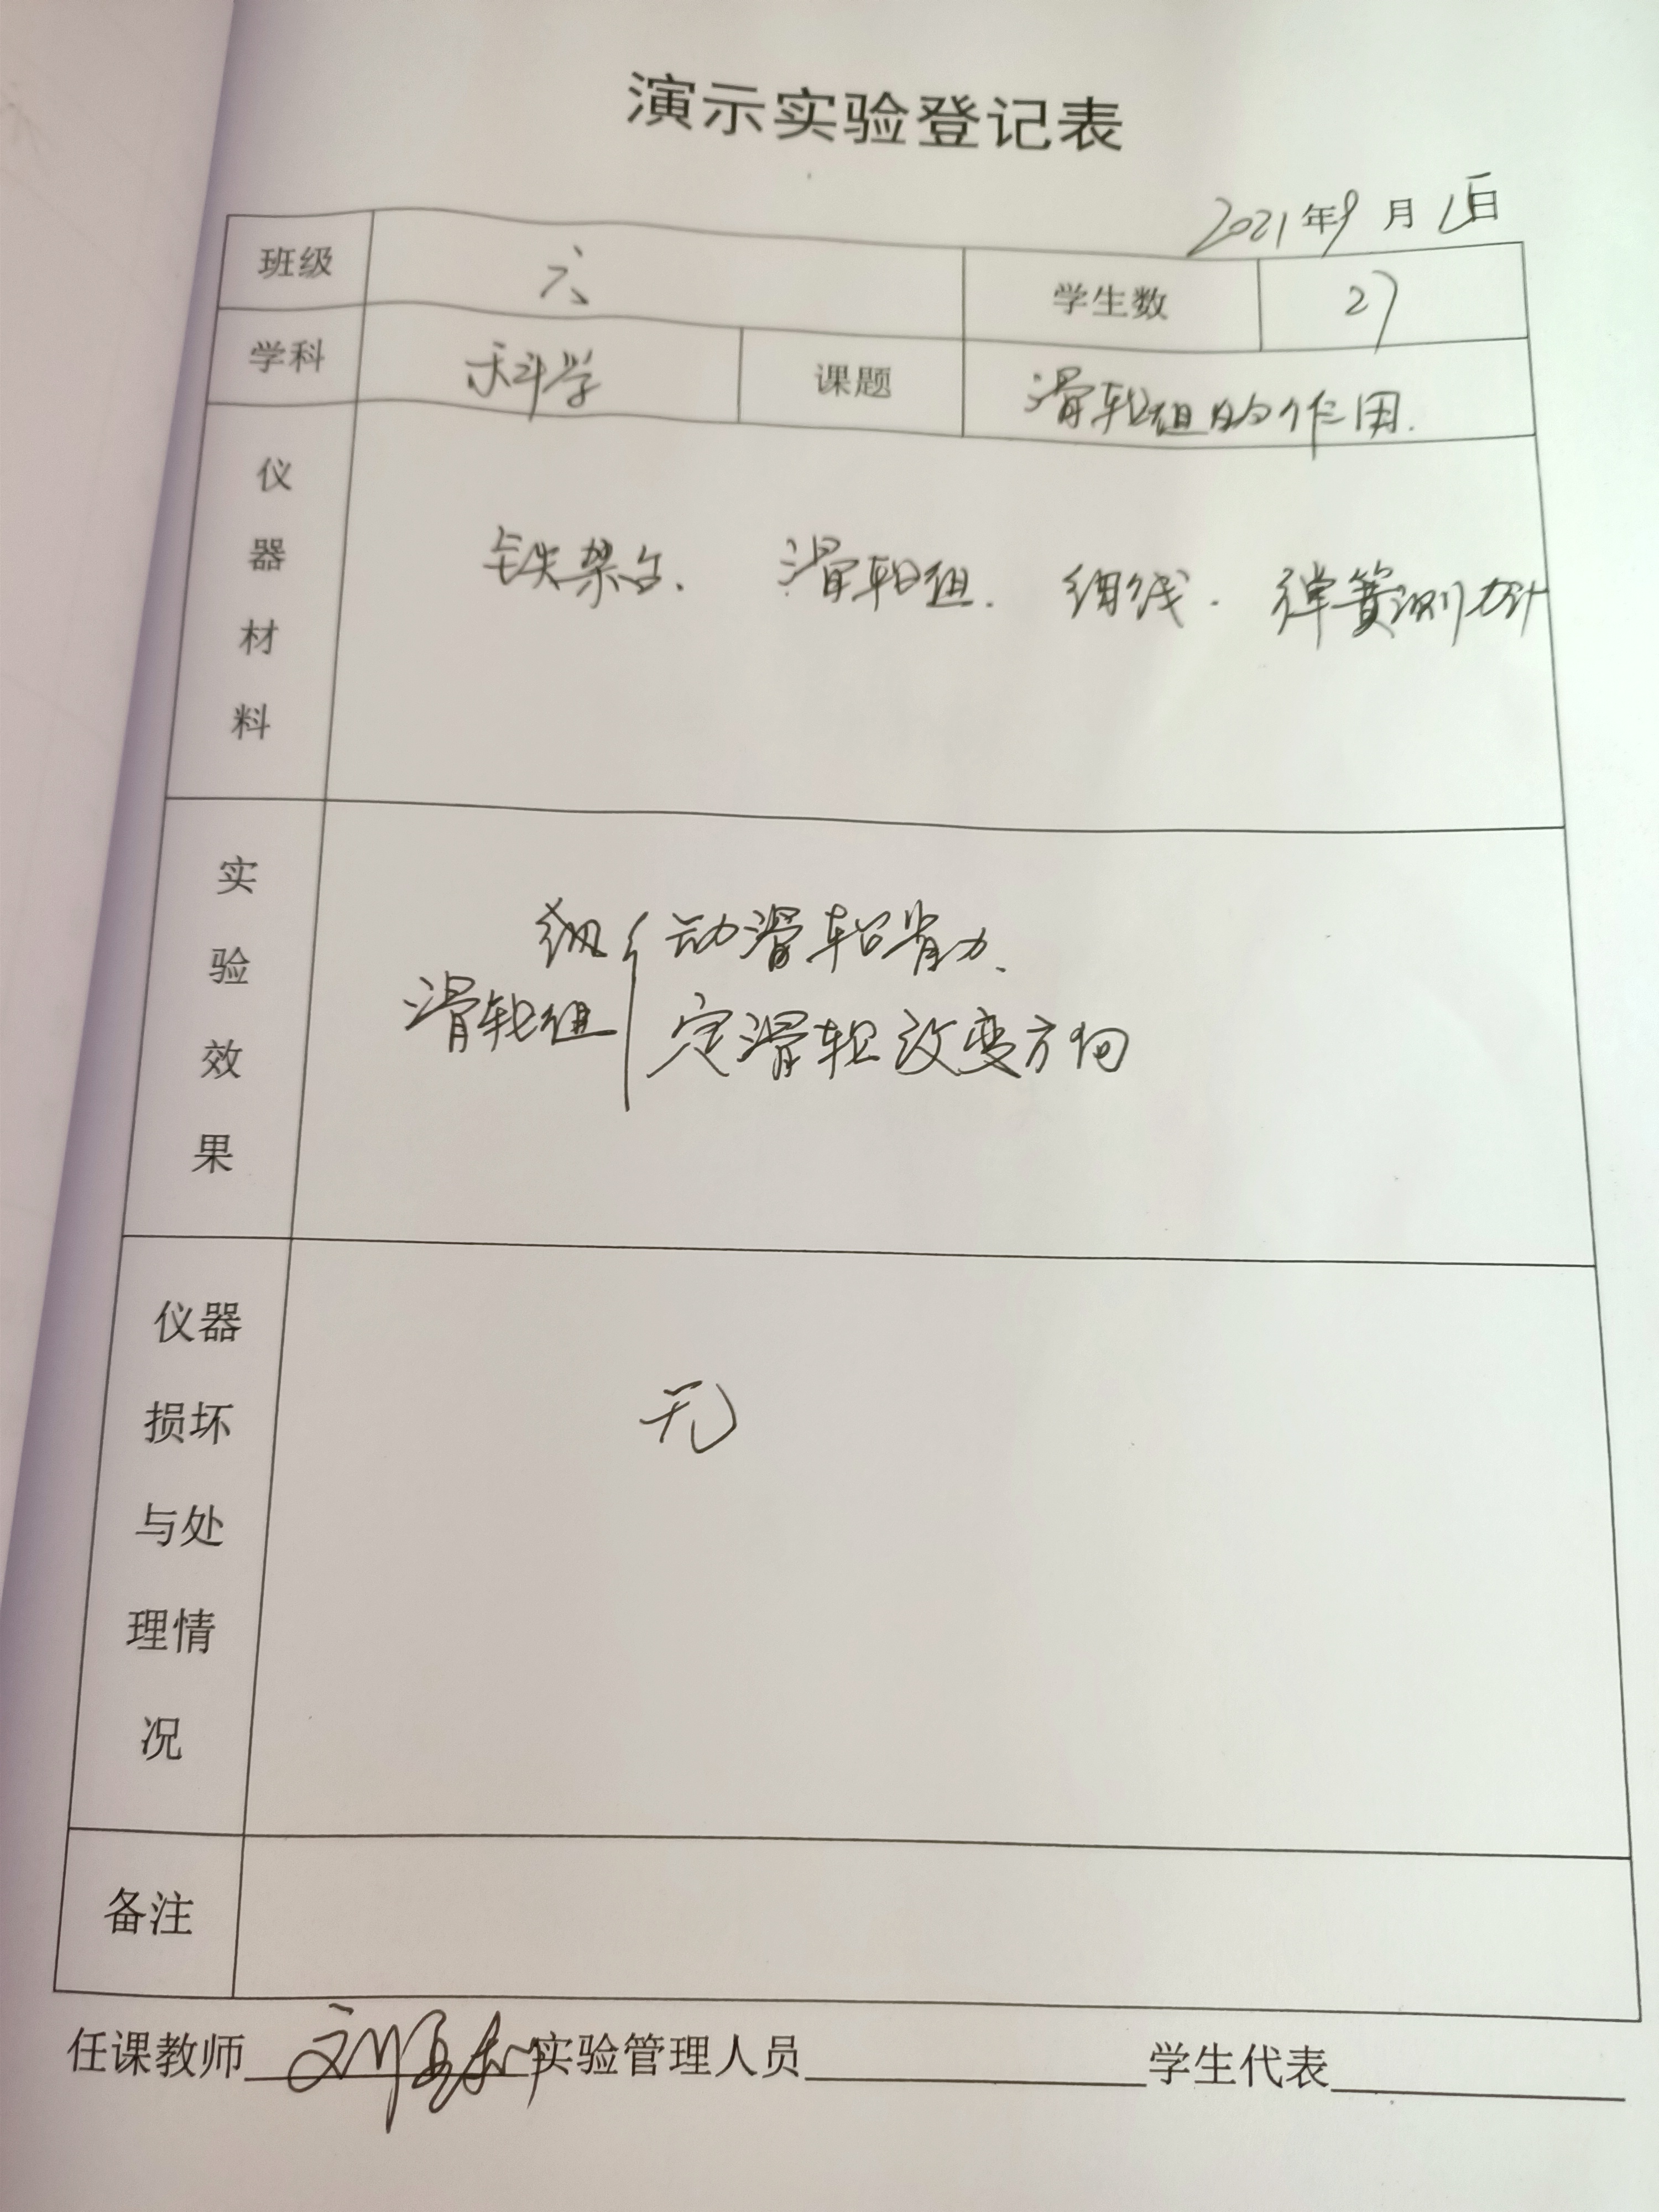 演示实验登记表
2021年9月15日
班级 六 学生数 27
学科 科学 课题 滑轮组的作用.
仪器材料 铁架台、 滑轮组. 细线. 弹簧测力计
实验效果
动滑轮省力、
滑轮组
定滑轮改变方向
仪器损坏与处理情况 无
备注
任课教师 刘 实验管理人员 学生代表